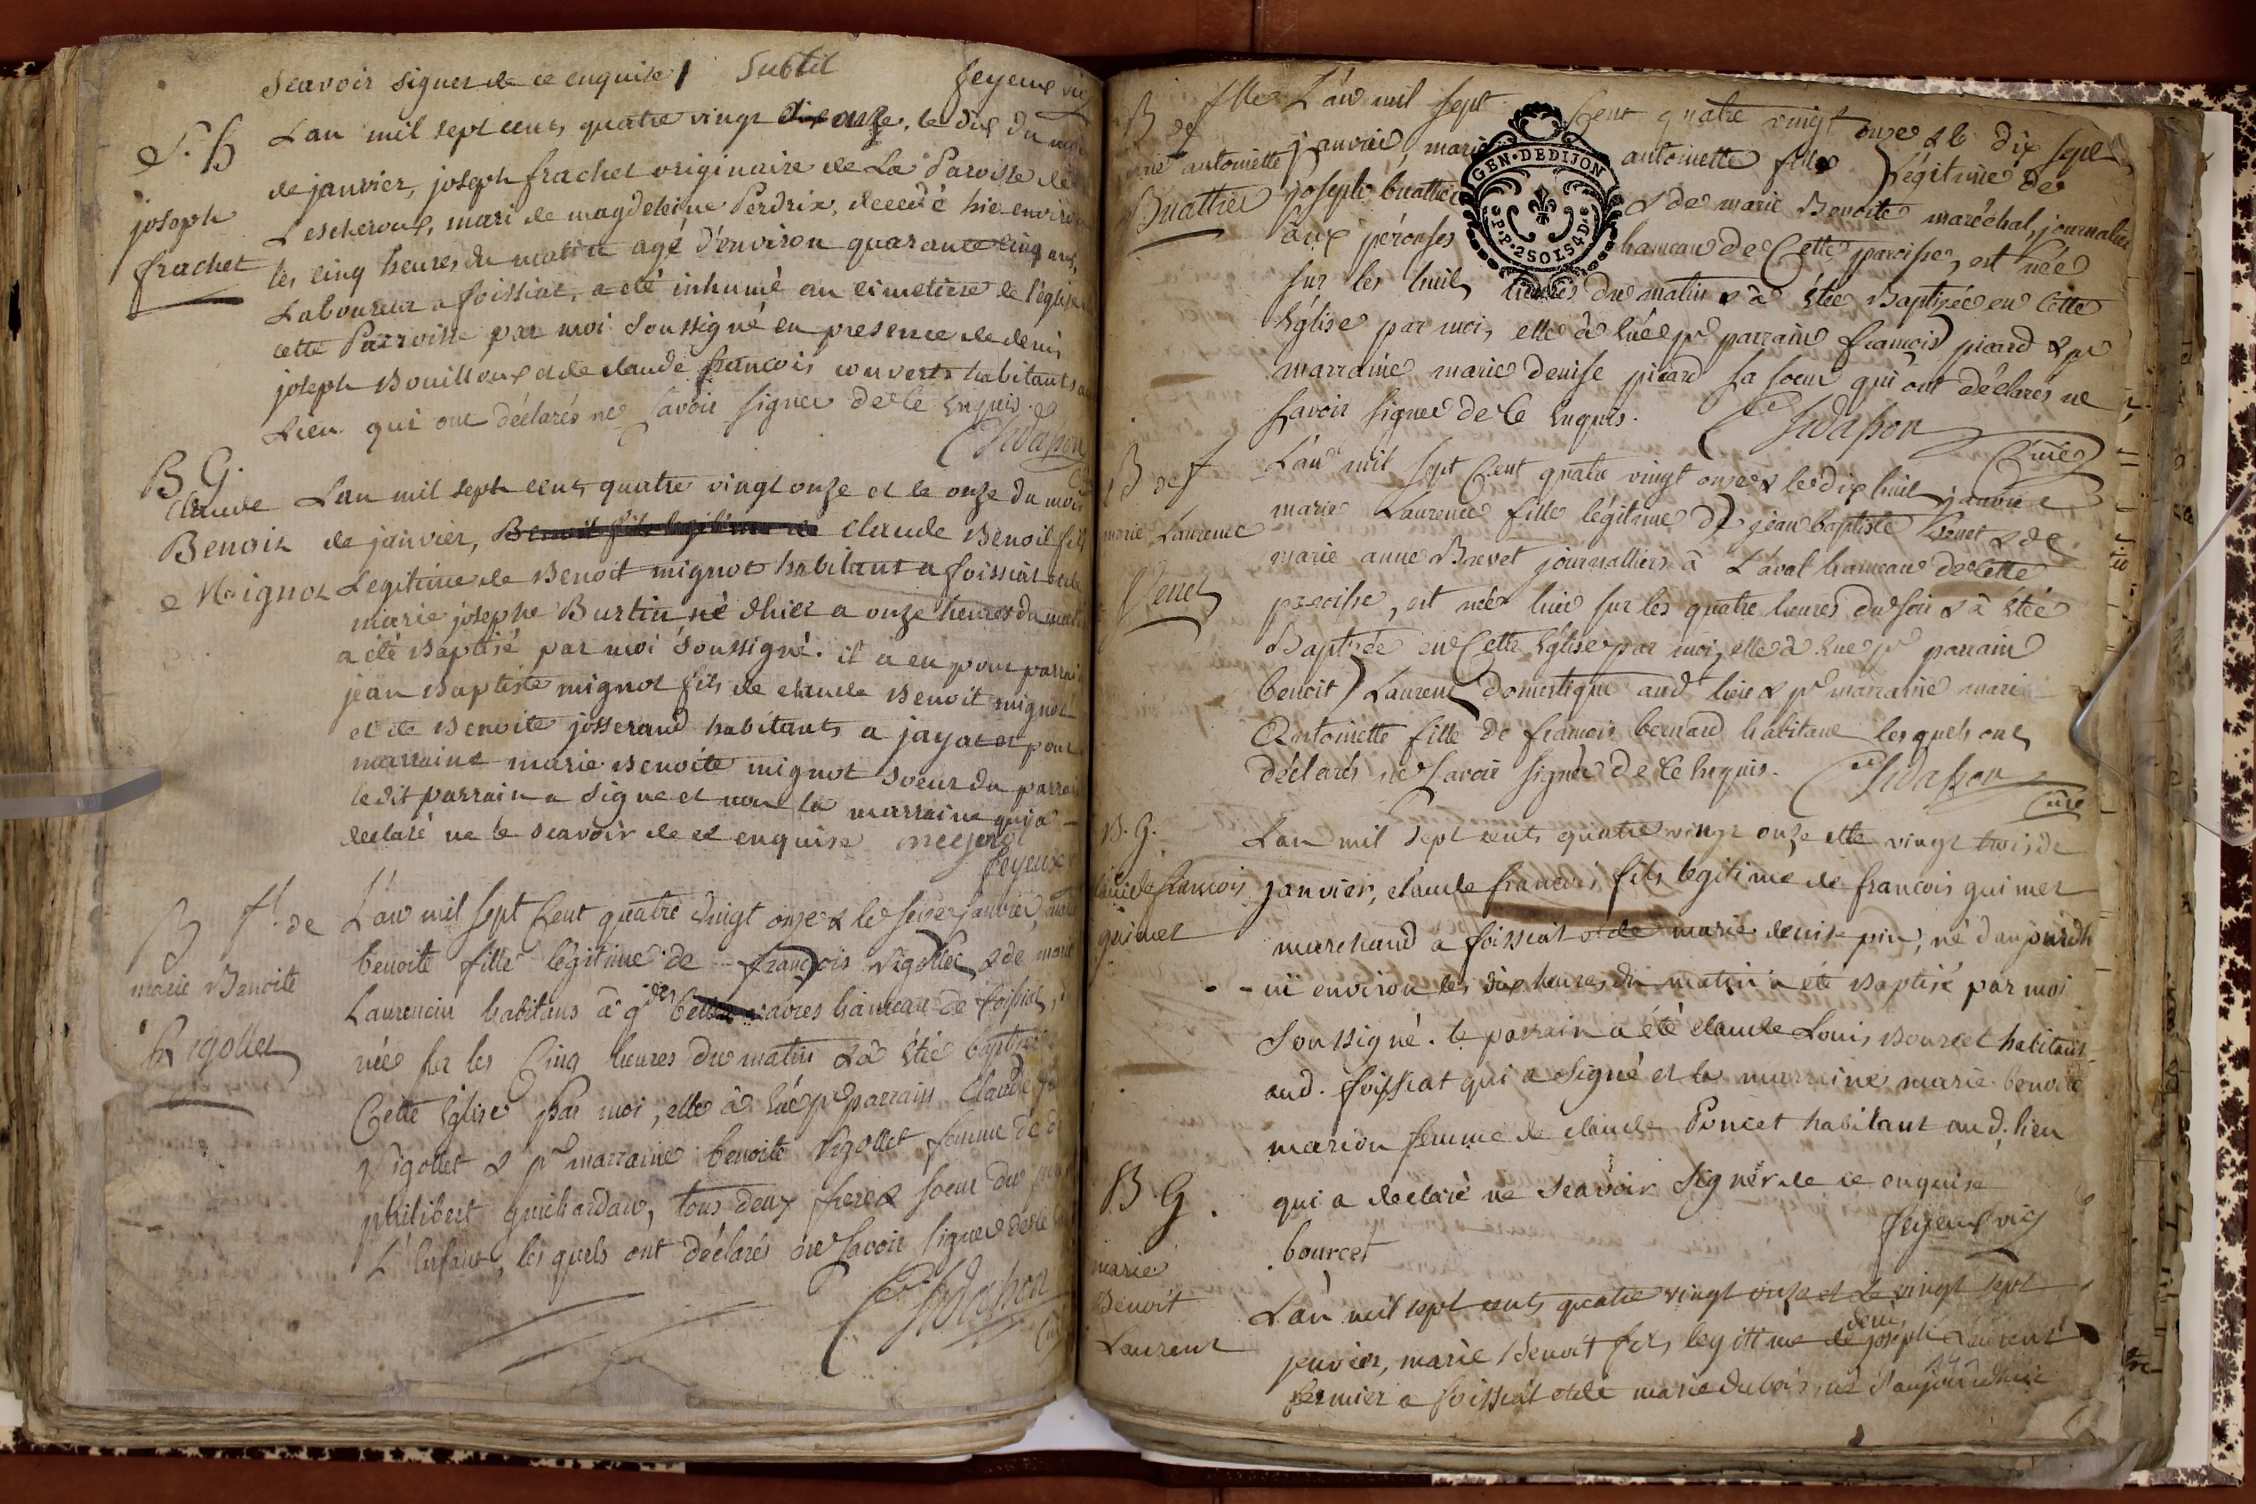 Scavoir signer de ce enquise Subtil
feyeux vic
S. h
joseph
frachet
Lan mil sept cents quatre vingt onze, le dix du mois
de janvier, joseph frachet originaire de La Paroisse de
Lescheroux, mari de magdeleine Perdrix, decedé hier environ
les cinq heures du matin agé d'environ quarante cinq ans,
Laboureur a foissiat, a été inhumé au cimetiere de l'église
cette Parroisse par moi soussigné en presence de denis
joseph Bouilloux et de claude françois convert habitants
Lieu qui ont déclarés ne savoir signer de ce enquis.
B G.
Claude
Benoit
Mignot
Lan mil sept cents quatre vingt onze et le onze du mois
de janvier, Benoit fils legitime de claude Benoit fils
Legitime de Benoit mignot habitant a foissiat et de
marie josephe Burtin né d'hier a onze heures du matin
a été Baptisé par moi soussigné. il a eu pour parrain
jean Baptiste mignot fils de claude Benoit mignot
et de Benoite josserand habitants a jayat et pour
marraine marie Benoite mignot soeur du parrain
ledit parrain a signe et non la marraine qui a
declaré ne le scavoir de ce enquise
feyeux
B fl. de
marie Benoite
Rigollet
L'an mil sept Cent quatre vingt onze & le seize janvier, marie
benoite fille légitime de françois Rigollet & de marie
Laurencin habitans à des hameau de foissiat,
née sur les Cinq heures du matin & à étée baptisée
Cette Eglise par moi, elle à eue pr parrain Claude
Rigollet & pr marraine benoite Rigollet femme de
philibert guichardan, tous deux frere & soeur du
L'Enfant, les quels ont déclarés ne savoir signer de ce
B de flle
marie antoinette
Buathier
L'an mil sept Cent quatre vingt onze & le dix sept
janvier, marie antoinette fille légitime de
joseph buathier & de marie Benoite maréchal, journalier
aux pérouses hameau de Cette paroisse, est née
sur les huit heures du matin & à étée Baptisée en Cette
Eglise par moi, elle à eue pr parrain françois picard & pr
marraine marie denise picard sa soeur qui ont déclarés ne
savoir signer de Ce Enquis.
Curé
GEN·DEDIJON
P.P. 2SOLS4D.
B de f
marie Laurence
Venet
L'an mil sept Cent quatre vingt onze & le dix huit janvier
marie Laurence fille légitime de jean baptiste Venet & de
marie anne Brevet journalliers à Laval hameau de Cette
paroisse, est née hier sur les quatre heures du soir & à étée
Baptisée en Cette Eglise par moi, elle à eue pr parrain
benoit Laurent domestique aud lieu & pr marraine marie
Antoinette fille de françois bernard habitant lesquels ont
déclarés ne savoir signer de Ce Enquis.
Curé
B. G.
Claude françois
guimet
Lan mil sept cents quatre vingt onze et le vingt trois de
janvier, claude francois fils legitime de francois guimet
marchand a foissiat et de marie denise pin, né d'aujourdh
ui environ les dix heures du matin a été Baptisé par moi
Soussigné. le parrain a été claude Louis Bourcet habitant
aud. foissiat qui a signé et la marraine marie benoite
marion femme de claude Poncet habitant aud. lieu
qui a declaré ne scavoir signer de ce enquise
bourcet
feyeux vic
B G.
marie
Benoit
Laurent
Lan mil sept cents quatre vingt onze et Le vingt sept
janvier, marie Benoit fils legitime de denis joseph Laurent
fermier a foissiat et de marie dubois, né d'aujourdhui